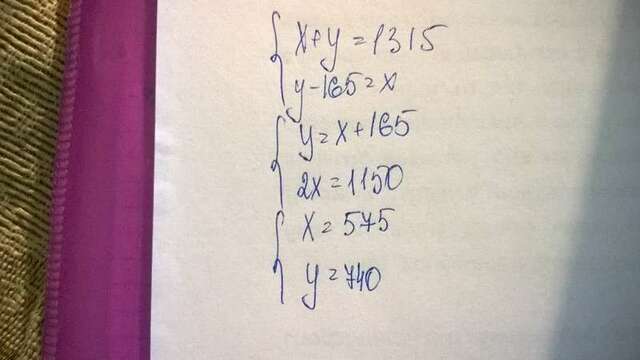 x+y=1315
y-165=x
y=x+165
2x=1150
x=575
y=740